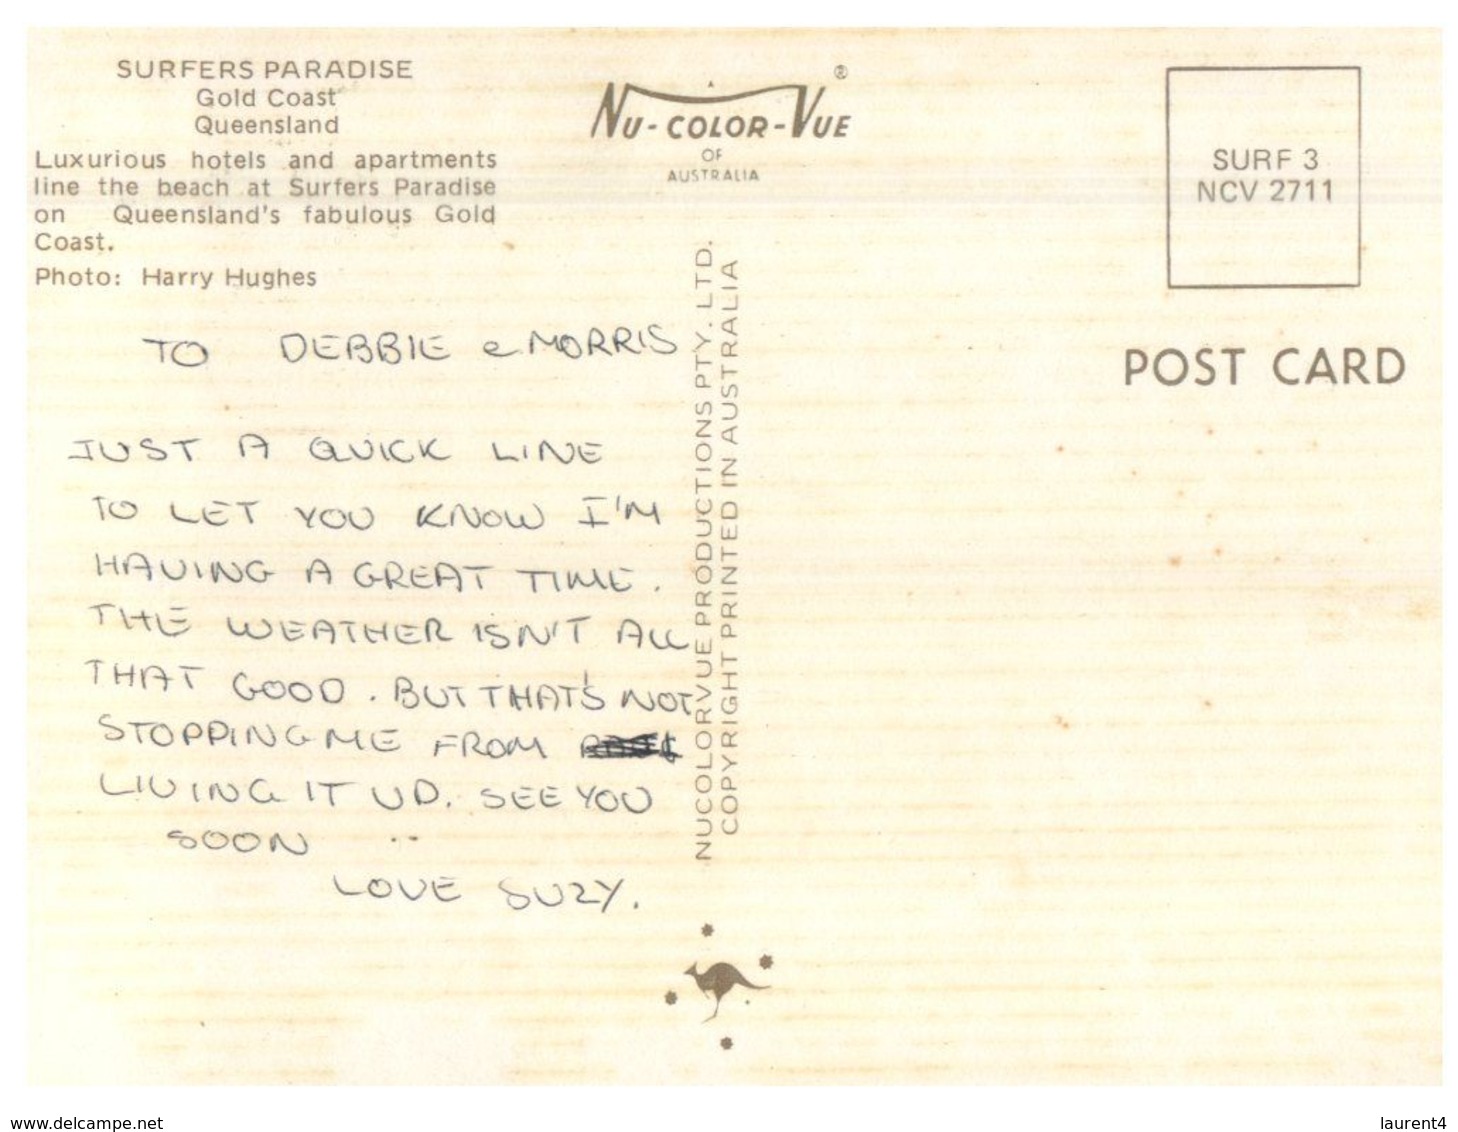 SURFERS PARADISE
Gold Coast
Queensland
Luxurious hotels and apartments
line the beach at Surfers Paradise
on Queensland's fabulous Gold
Coast.
Photo: Harry Hughes
NU-COLOR-VUE ®
OF
AUSTRALIA
SURF 3
NCV 2711
POST CARD
NUCOLORVUE PRODUCTIONS PTY. LTD.
COPYRIGHT PRINTED IN AUSTRALIA
TO DEBBIE & MORRIS
JUST A QUICK LINE
TO LET YOU KNOW I'M
HAVING A GREAT TIME.
THE WEATHER ISN'T ALL
THAT GOOD. BUT THAT'S NOT
STOPPING ME FROM
LIVING IT UP. SEE YOU
SOON ..
LOVE SUZY.
www.delcampe.net
laurent4